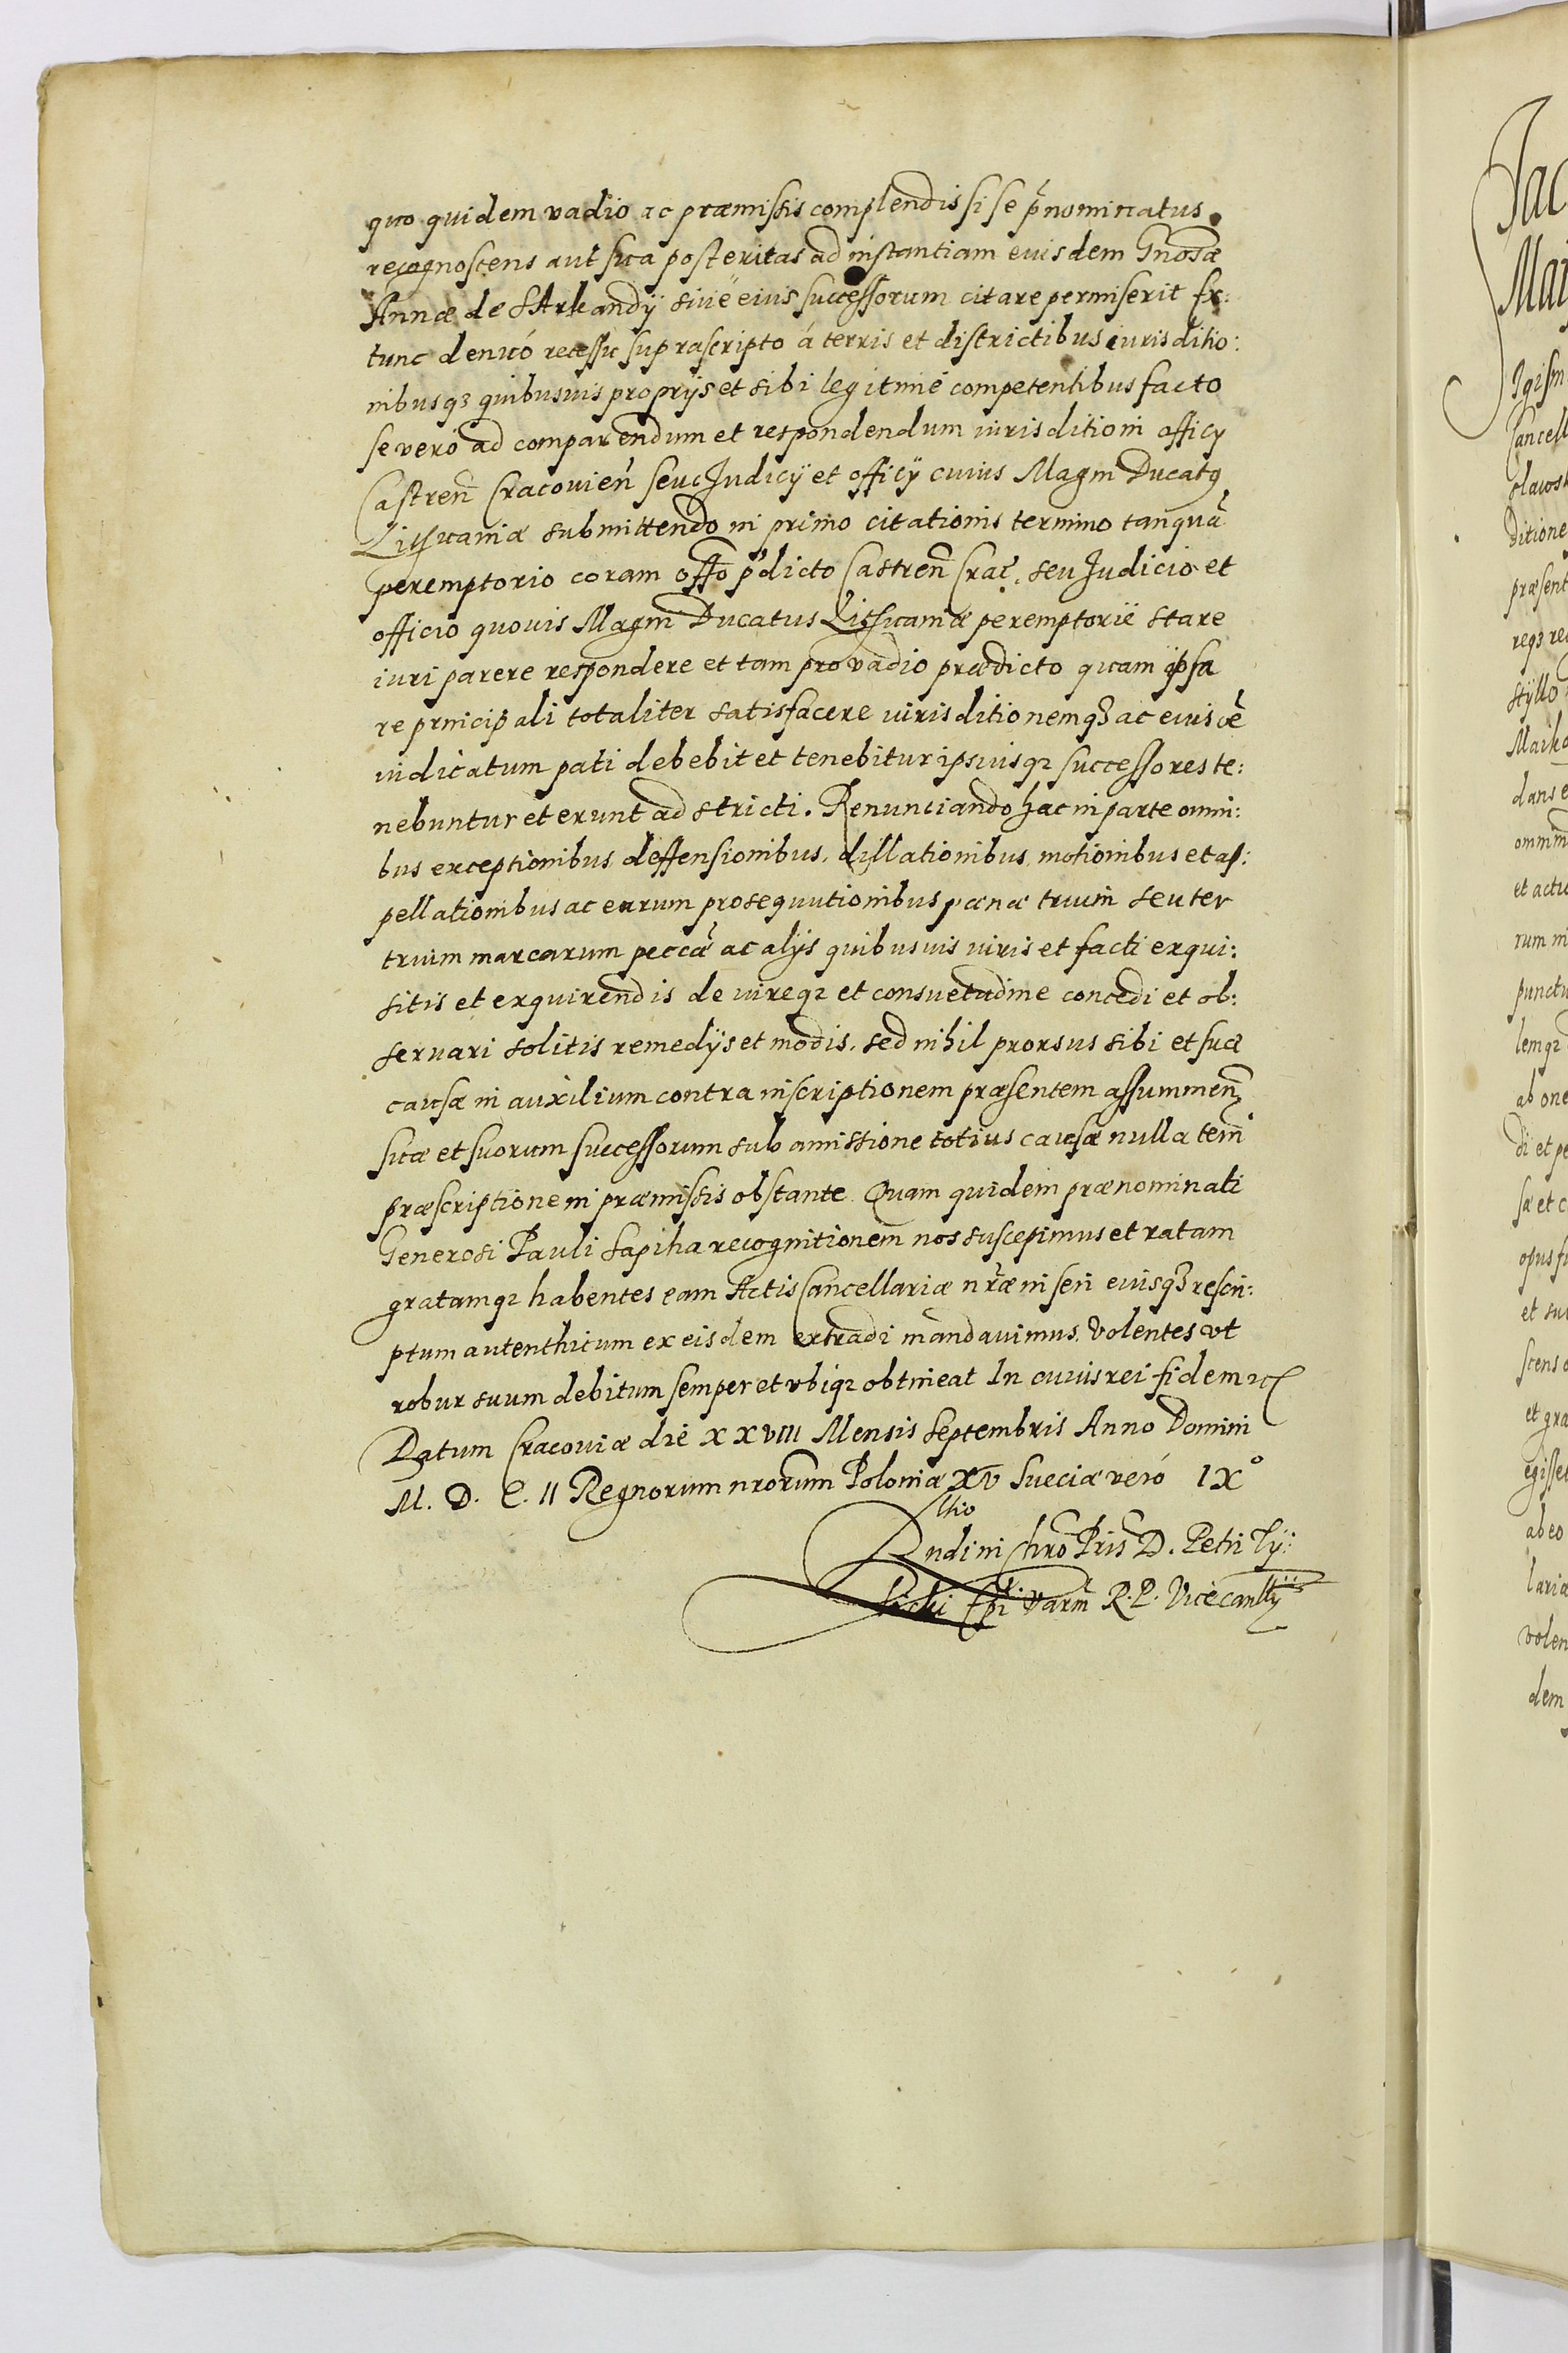 quo quidem vadio ac præmissis complendis si se p̃nominatus
recognoscens aut sua posteritas ad instantiam eiusdem Gnosæ
Annæ de Starkandÿ siuè eius successorum citare permiserit Ex:
tunc denuó recessu suprascripto á terris et districtibus iurisditio:
nibusqȝ quibusuis proprÿs et sibi legitimè competentibus facto
se vero ad comparendum et respondendum iurisditioni officÿ
Castren̄ Cracouien̄ seu Judicÿ et officÿ cuius Magni Ducatꝰ
Lithuaniæ submittendo in primo citationis termino tanquã
peremptorio coram offo p̃dicto Castren̄ Crac̄. seu Judicio et
officio quouis Magni Ducatus Lithuaniæ peremptoriè stare
iuri parere respondere et tam pro vadio prædicto quam ipsa
re principali totaliter satisfacere iurisditionemqȝ ac eius rē
iudicatum pati debebit et tenebitur ipsiusqȝ successores te:
nebuntur et erunt adstricti. Renunciando hac in parte omni:
bus exceptionibus deffensionibus, dillationibus motionibus et ap:
pellationibus ac earum prosequutionibus pænæ trium seu ter
trium marcarum peccæ̃ ac alÿs quibusuis iuris et facti exqui:
sitis et exquirendis de iureqȝ et consuetudine concedi et ob:
seruari solitis remedÿs et modis, sed nihil prorsus sibi et suæ
causæ in auxilium contra inscriptionem præsentem assummen̄
suæ et suorum successorum sub amissione totius causæ nulla tem̄
præscriptione in præmissis obstante Quam quidem prænominati
Generosi Pauli Sapiha recognitionem nos suscepimus et ratam
gratamqȝ habentes eam Actis Cancellariæ nr̃æ inseri eiusqȝ rescri:
ptum autenthicum ex eisdem extradi mandauimus. Volentes vt
robur suum debitum semper et vbiqȝ obtineat In cuius rei fidem ꝛc
Datum Cracouiæ die XXVIII Mensis Septembris Anno Domini
M. D. C. II Regnorum nrorum Poloniæ XV Sueciæ veró IX°
Rltio
Rndi in Chro Pris D. Petri Tÿ:
licki Epi Varm̄ R. P. Vicècanllÿ